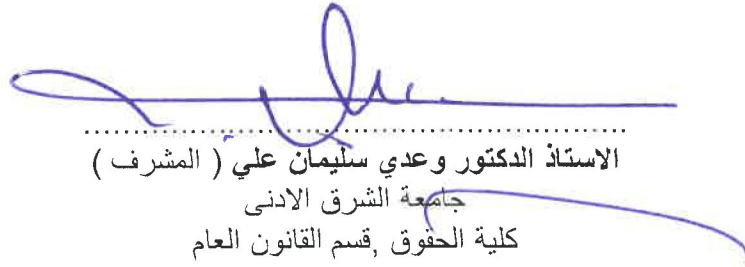 الاستاذ الدكتور وعدي سليمان علي ( المشرف )
جامعة الشرق الادنى
كلية الحقوق ,قسم القانون العام